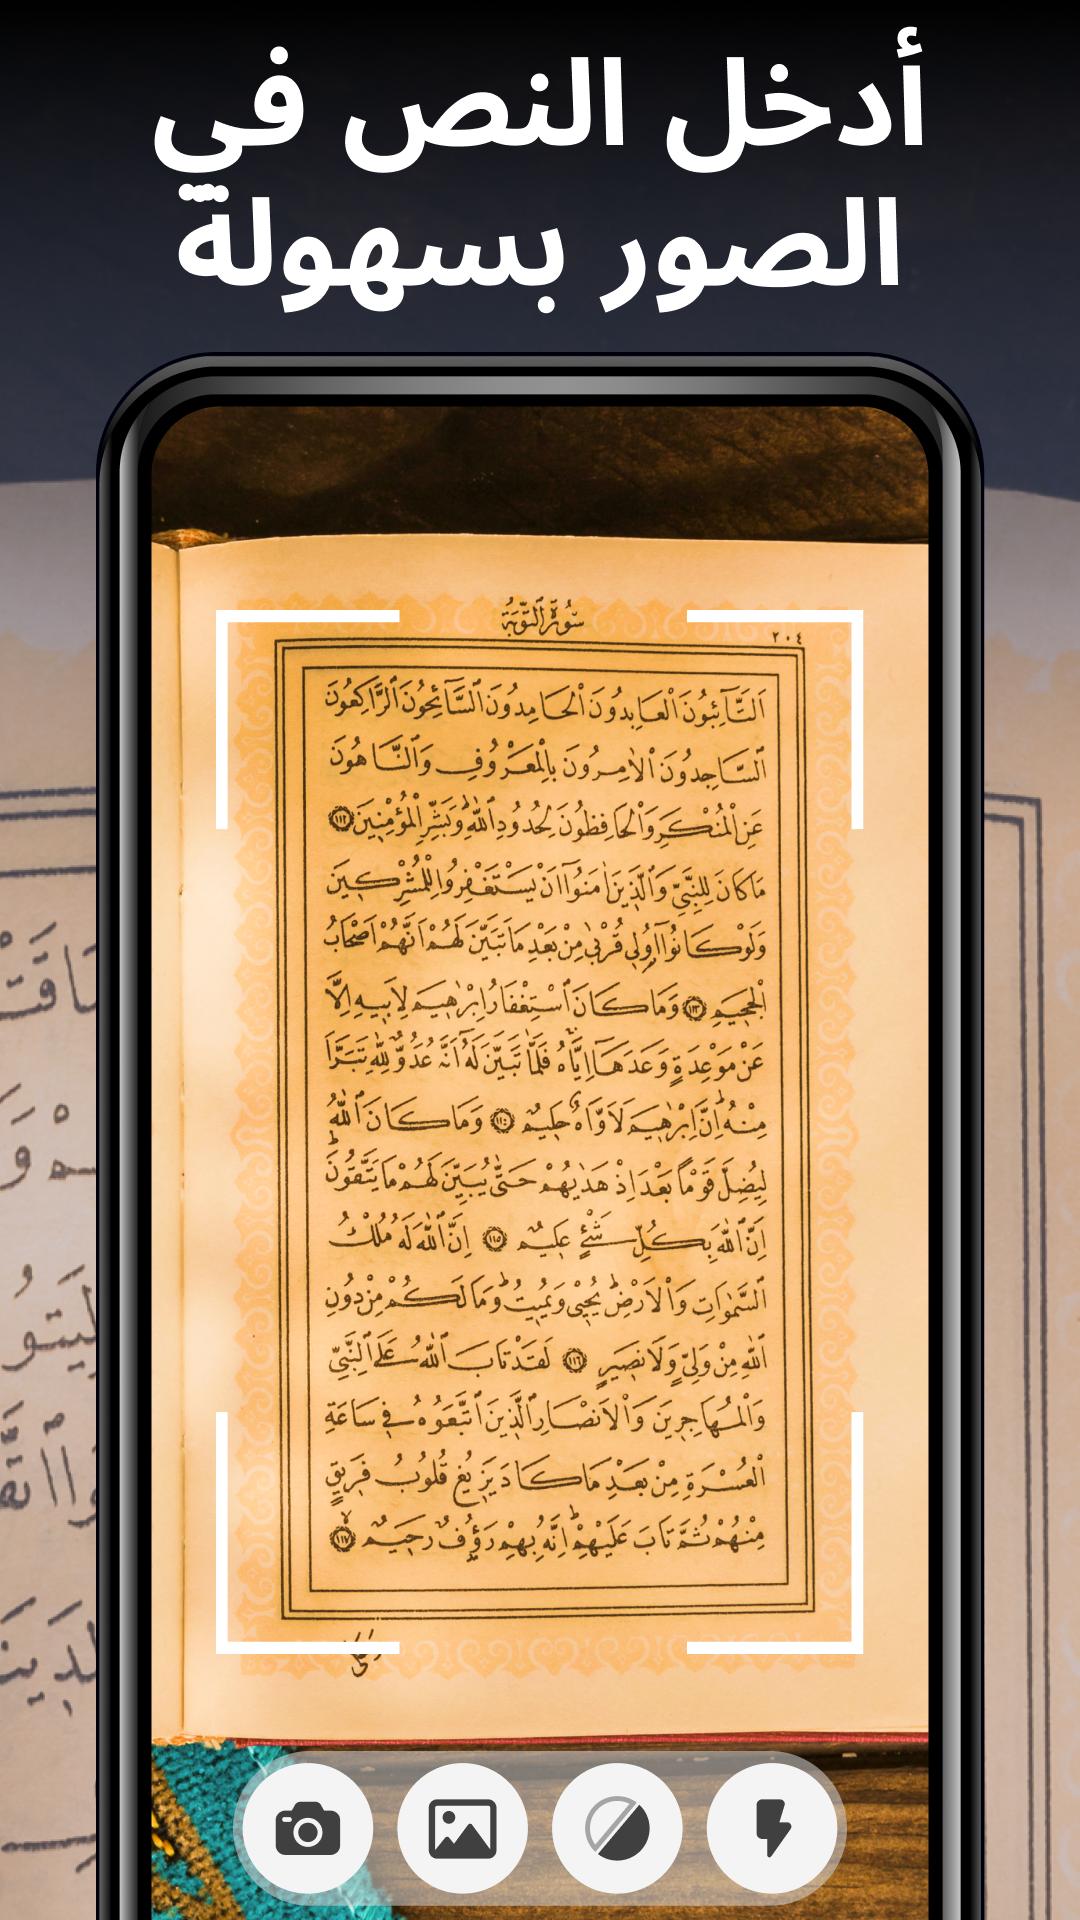 أدخل النص في
الصور بسهولة
سُورَةُ ٱلتَّوْبَةِ
٢٠٤
اَلتَّٓائِبُونَ الْعَابِدُونَ الْحَامِدُونَ السَّٓائِحُونَ الرَّاكِعُونَ
السَّاجِدُونَ الْاٰمِرُونَ بِالْمَعْرُوفِ وَالنَّاهُونَ
عَنِ الْمُنْكَرِ وَالْحَافِظُونَ لِحُدُودِ اللّٰهِ وَبَشِّرِ الْمُؤْمِنِينَ ١١٢
مَا كَانَ لِلنَّبِيِّ وَالَّذِينَ اٰمَنُٓوا اَنْ يَسْتَغْفِرُوا لِلْمُشْرِكِينَ
وَلَوْ كَانُٓوا اُو۬لِي قُرْبٰى مِنْ بَعْدِ مَا تَبَيَّنَ لَهُمْ اَنَّهُمْ اَصْحَابُ
الْجَحِيمِ ١١٣ وَمَا كَانَ اسْتِغْفَارُ اِبْرٰهِيمَ لِاَبِيهِ اِلَّا
عَنْ مَوْعِدَةٍ وَعَدَهَٓا اِيَّاهُ فَلَمَّا تَبَيَّنَ لَهُٓ اَنَّهُ عَدُوٌّ لِلّٰهِ تَبَرَّاَ
مِنْهُ اِنَّ اِبْرٰهِيمَ لَاَوَّاهٌ حَلِيمٌ ١١٤ وَمَا كَانَ اللّٰهُ
لِيُضِلَّ قَوْمًا بَعْدَ اِذْ هَدٰيهُمْ حَتّٰى يُبَيِّنَ لَهُمْ مَا يَتَّقُونَ
اِنَّ اللّٰهَ بِكُلِّ شَيْءٍ عَلِيمٌ ١١٥ اِنَّ اللّٰهَ لَهُ مُلْكُ
السَّمٰوَاتِ وَالْاَرْضِ يُحْيِي وَيُمِيتُ وَمَا لَكُمْ مِنْ دُونِ
اللّٰهِ مِنْ وَلِيٍّ وَلَا نَصِيرٍ ١١٦ لَقَدْ تَابَ اللّٰهُ عَلَى النَّبِيِّ
وَالْمُهَاجِرِينَ وَالْاَنْصَارِ الَّذِينَ اتَّبَعُوهُ فِي سَاعَةِ
الْعُسْرَةِ مِنْ بَعْدِ مَا كَادَ يَزِيغُ قُلُوبُ فَرِيقٍ
مِنْهُمْ ثُمَّ تَابَ عَلَيْهِمْ اِنَّهُ بِهِمْ رَؤُ۫فٌ رَحِيمٌ ١١٧